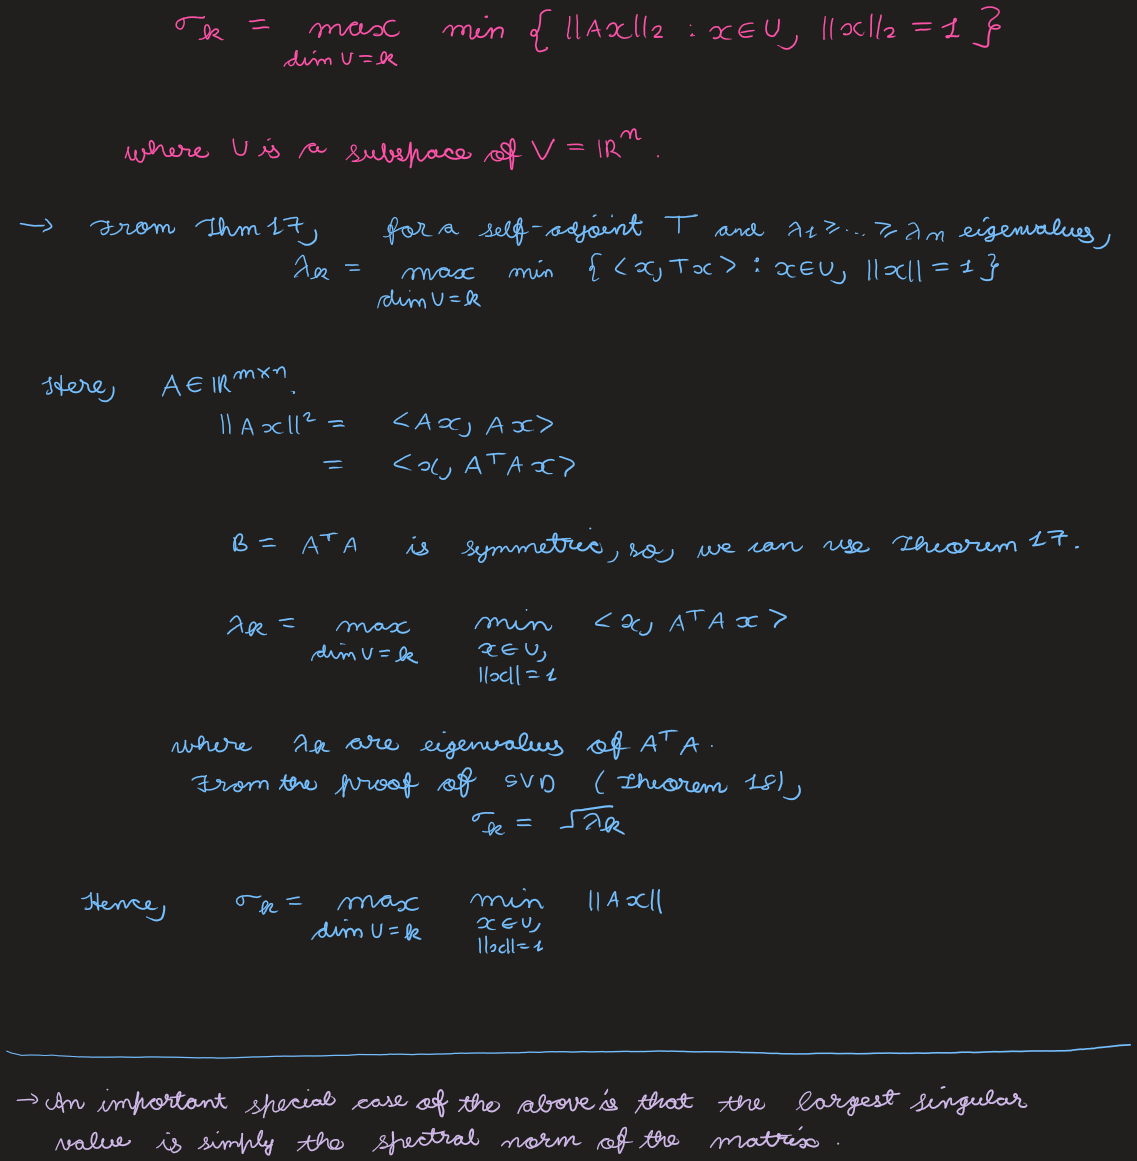 σₖ = max min { ||Ax||₂ : x∈U, ||x||₂ = 1 }
dim U = k
where U is a subspace of V = ℝⁿ.
→ From Thm 17, for a self-adjoint T and λ₁ ≥ ... ≥ λₙ eigenvalues,
λₖ = max min { <x, Tx> : x∈U, ||x|| = 1 }
dim U = k
Here, A ∈ ℝᵐˣⁿ.
||Ax||² = <Ax, Ax>
= <x, AᵀAx>
B = AᵀA is symmetric, so, we can use Theorem 17.
λₖ = max min <x, AᵀAx>
dim U = k x∈U,
||x|| = 1
where λₖ are eigenvalues of AᵀA.
From the proof of SVD (Theorem 18),
σₖ = √λₖ
Hence, σₖ = max min ||Ax||
dim U = k x∈U,
||x|| = 1
→ An important special case of the above is that the largest singular
value is simply the spectral norm of the matrix.